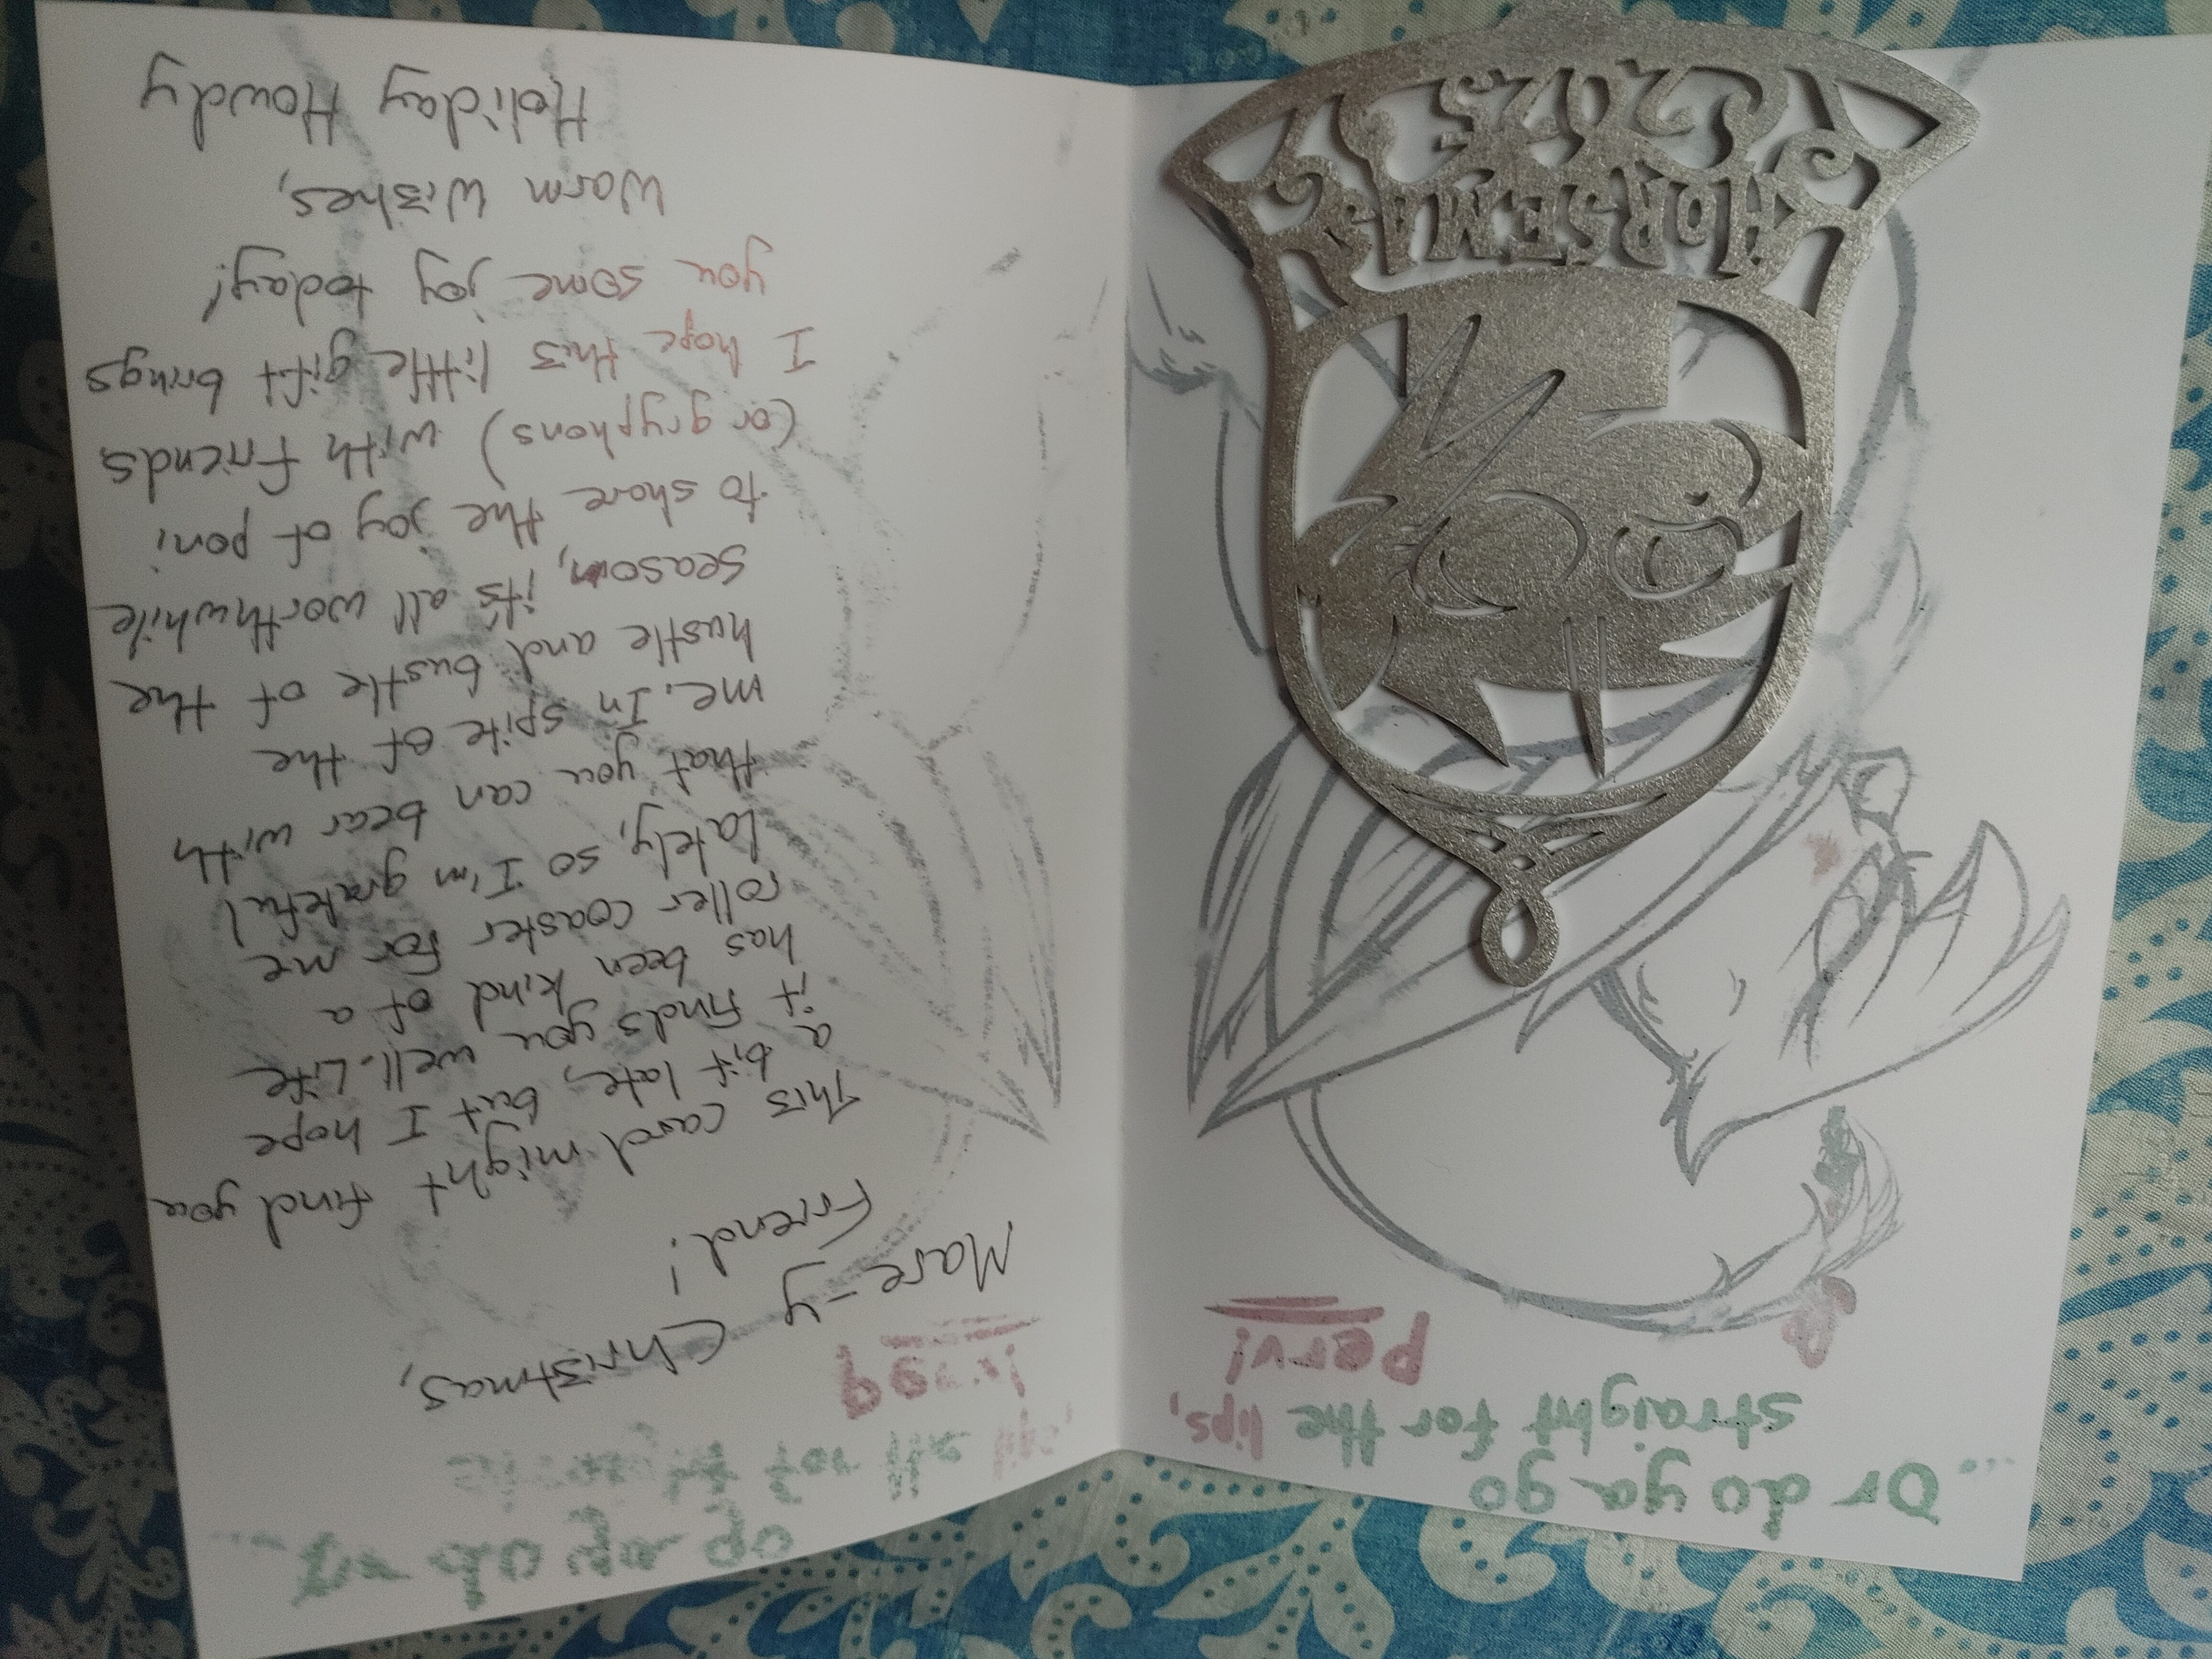 ...Or do ya go
straight for the lips,
perv!
HORSEMAS
2025
Mare-y Christmas,
Friend!
This card might find you
a bit late, but I hope
it finds you well. Life
has been kind of a
roller coaster for me
lately, so I'm grateful
that you can bear with
me. In spite of the
hustle and bustle of the
season, it's all worthwhile
to share the joy of poni
(or gryphons) with friends.
I hope this little gift brings
you some joy today!
Warm Wishes,
Holiday Howdy